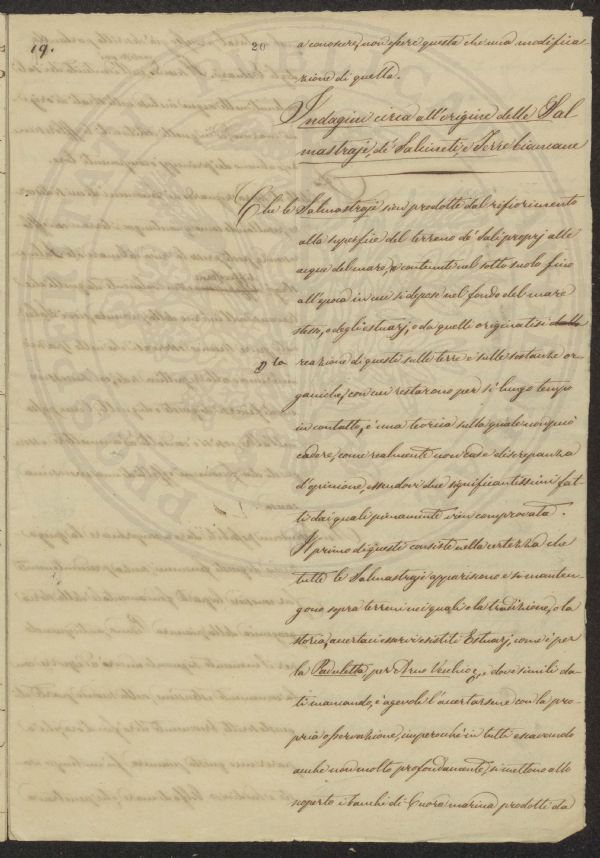 19.
20
a conoscere, non essere questa che una modifica-
zione di quella.
Indagini circa all'origine delle Sal
mastraje, de' Salcineti, e Terre biancane
Che le Salmastraje sien prodotte dal rifiorimento
alla superficie del terreno de' Sali proprj alle
acque del mare, e contenute nel sotto suolo fino
all'epoca in cui si depose nel fondo del mare
stesso, e degli estuarj, o da quelli originatisi dalla
la
reazione di questi sulle terre e sulle sostanze or-
ganiche, con cui restarono per sì lungo tempo
in contatto, è una teorica sulla quale non può
cadere, come realmente non cade discrepanza
d'opinione, essendovi due significantissimi fat-
ti dai quali pienamente vien comprovata.
Il primo di questi consiste nella certezza che
tutte le Salmastraje appariscono e si manten-
gono sopra terreni nei quali o la tradizione, o la
storia, accertaci esservi esistiti Estuarj, come è per
la Paduletta, per Arno Vecchio &, e dove simili da-
ti mancando, è agevole l'accertarsene con la pro-
pria osservazione, imperocchè in tutti escavando
anche non molto profondamente, si mettono allo
scoperto i banchi di Cuora marina prodotti da